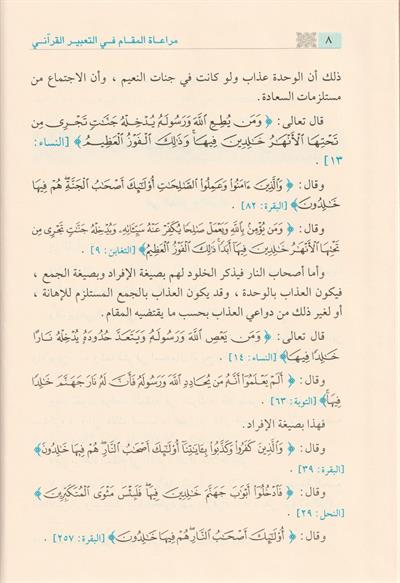 ٨ مراعاة المقام في التعبير القرآني
ذلك أن الوحدة عذاب ولو كانت في جنات النعيم ، وأن الاجتماع من
مستلزمات السعادة.
قال تعالى: ﴿ وَمَن يُطِعِ ٱللَّهَ وَرَسُولَهُۥ يُدْخِلْهُ جَنَّٰتٍ تَجْرِى مِن
تَحْتِهَا ٱلْأَنْهَٰرُ خَٰلِدِينَ فِيهَا ۚ وَذَٰلِكَ ٱلْفَوْزُ ٱلْعَظِيمُ ﴾ [النساء :
١٣] .
وقال : ﴿ وَٱلَّذِينَ ءَامَنُوا۟ وَعَمِلُوا۟ ٱلصَّٰلِحَٰتِ أُو۟لَٰٓئِكَ أَصْحَٰبُ ٱلْجَنَّةِ ۖ هُمْ فِيهَا
خَٰلِدُونَ ﴾ [البقرة : ٨٢] .
وقال : ﴿ وَمَن يُؤْمِنۢ بِٱللَّهِ وَيَعْمَلْ صَٰلِحًا يُكَفِّرْ عَنْهُ سَيِّـَٔاتِهِۦ وَيُدْخِلْهُ جَنَّٰتٍ تَجْرِى مِن
تَحْتِهَا ٱلْأَنْهَٰرُ خَٰلِدِينَ فِيهَآ أَبَدًا ۚ ذَٰلِكَ ٱلْفَوْزُ ٱلْعَظِيمُ ﴾ [التغابن : ٩] .
وأما أصحاب النار فيذكر الخلود لهم بصيغة الإفراد وبصيغة الجمع ،
فيكون العذاب بالوحدة ، وقد يكون العذاب بالجمع المستلزم للإهانة ،
أو لغير ذلك من دواعي العذاب بحسب ما يقتضيه المقام .
قال تعالى : ﴿ وَمَن يَعْصِ ٱللَّهَ وَرَسُولَهُۥ وَيَتَعَدَّ حُدُودَهُۥ يُدْخِلْهُ نَارًا
خَٰلِدًا فِيهَا ﴾ [النساء : ١٤] .
وقال : ﴿ أَلَمْ يَعْلَمُوٓا۟ أَنَّهُۥ مَن يُحَادِدِ ٱللَّهَ وَرَسُولَهُۥ فَأَنَّ لَهُۥ نَارَ جَهَنَّمَ خَٰلِدًا
فِيهَا ۚ ﴾ [التوبة : ٦٣] .
فهذا بصيغة الإفراد.
وقال : ﴿ وَٱلَّذِينَ كَفَرُوا۟ وَكَذَّبُوا۟ بِـَٔايَٰتِنَآ أُو۟لَٰٓئِكَ أَصْحَٰبُ ٱلنَّارِ ۖ هُمْ فِيهَا خَٰلِدُونَ ﴾
[البقرة : ٣٩] .
وقال : ﴿ فَٱدْخُلُوٓا۟ أَبْوَٰبَ جَهَنَّمَ خَٰلِدِينَ فِيهَا ۖ فَلَبِئْسَ مَثْوَى ٱلْمُتَكَبِّرِينَ ﴾
[النحل : ٢٩] .
وقال : ﴿ أُو۟لَٰٓئِكَ أَصْحَٰبُ ٱلنَّارِ ۖ هُمْ فِيهَا خَٰلِدُونَ ﴾ [البقرة : ٢٥٧] .